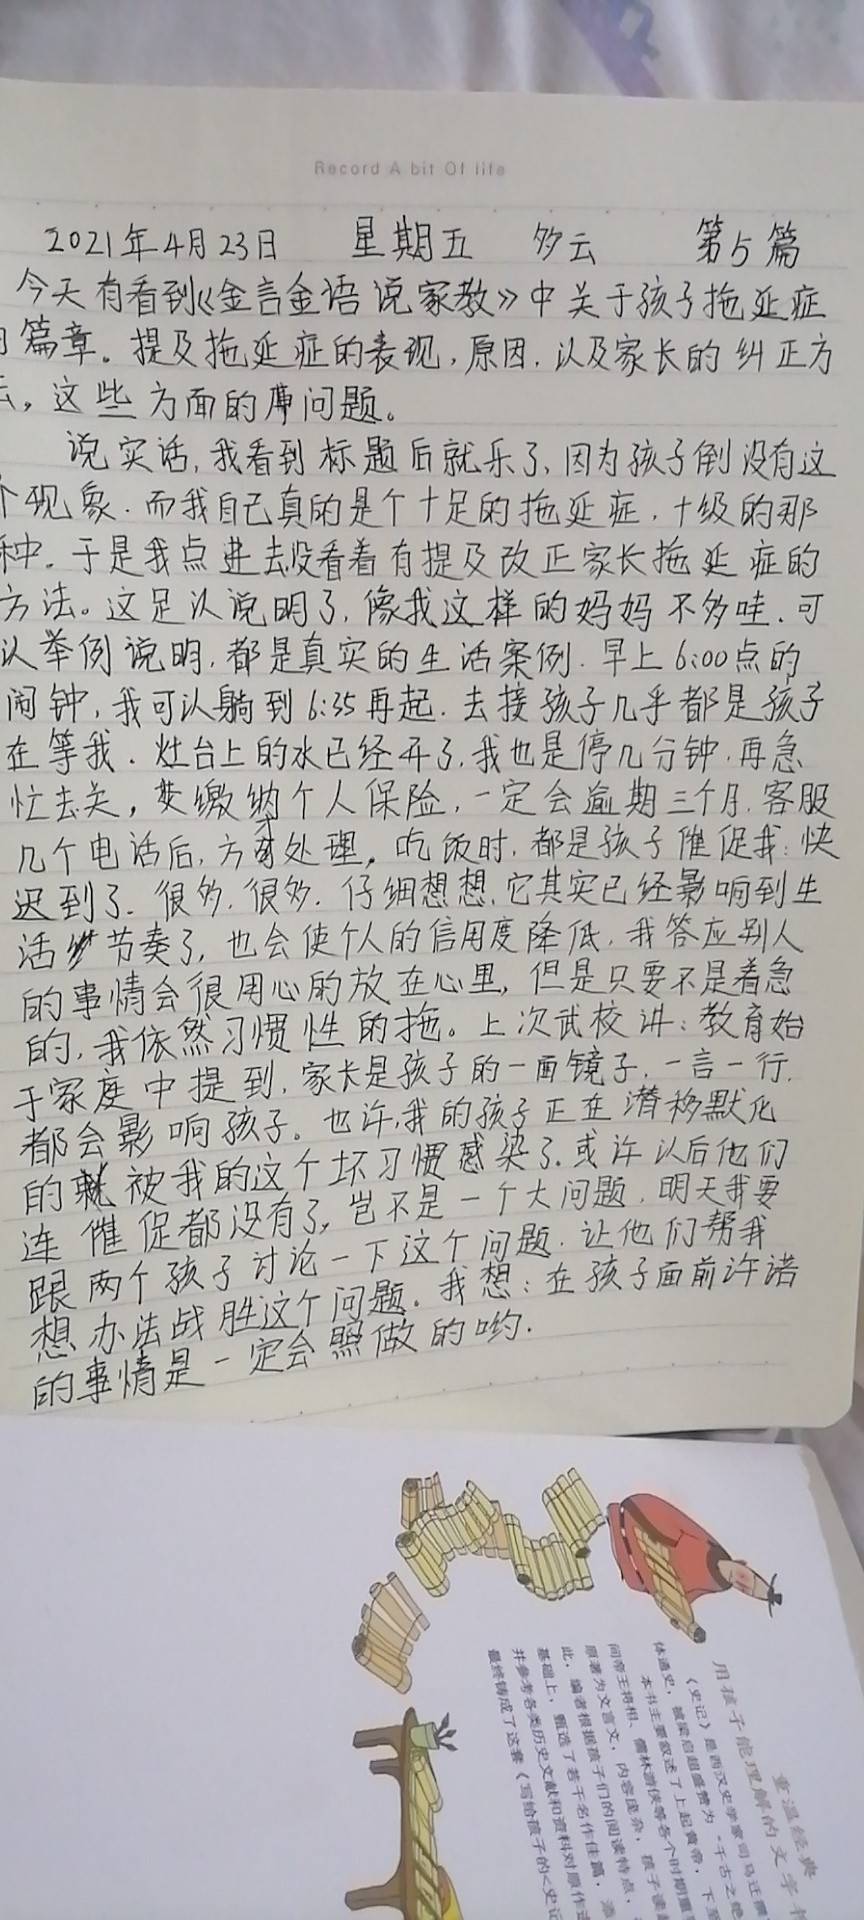 Record A bit Of life
2021年4月23日 星期五 多云 第5篇
今天有看到《金言金语说家教》中关于孩子拖延症
篇章。提及拖延症的表现,原因.以及家长的纠正方
,这些方面的问题。
说实话,我看到标题后就乐了,因为孩子倒没有这
个现象.而我自己真的是个十足的拖延症.十级的那
种.于是我点进去没看着有提及改正家长拖延症的
方法。这足以说明了,像我这样的妈妈不多哇.可
以举例说明,都是真实的生活案例.早上6:00点的
闹钟,我可以躺到6:35再起.去接孩子几乎都是孩子
在等我.灶台上的水已经开了,我也是停几分钟.再急
忙去关,要缴纳个人保险,一定会逾期三个月.客服
几个电话后,方才处理。吃饭时.都是孩子催促我:快
迟到了.很多.很多.仔细想想,它其实已经影响到生
活节奏了,也会使个人的信用度降低.我答应别人
的事情会很用心的放在心里,但是只要不是着急
的,我依然习惯性的拖。上次武校讲:教育始
于家庭中提到,家长是孩子的一面镜子.一言一行.
都会影响孩子。也许,我的孩子正在潜移默化
的就被我的这个坏习惯感染了.或许以后他们
连催促都没有了,岂不是一个大问题.明天我要
跟两个孩子讨论一下这个问题.让他们帮我
想办法战胜这个问题。我想:在孩子面前许诺
的事情是一定会照做的哟.
重温经典
用孩子能理解的文字
《史记》是西汉史学家司马迁撰
体通史,被梁启超盛赞为“千古之绝
本书主要叙述了上起黄帝,下至
间帝王将相、儒林游侠等各个时期重
原著为文言文,内容庞杂,孩子读
此,编者根据孩子们的阅读特点,
基础上,甄选了若干名作佳篇,添
并参考各类历史文献和资料对原作进
最终铸成了这套《写给孩子的<史记